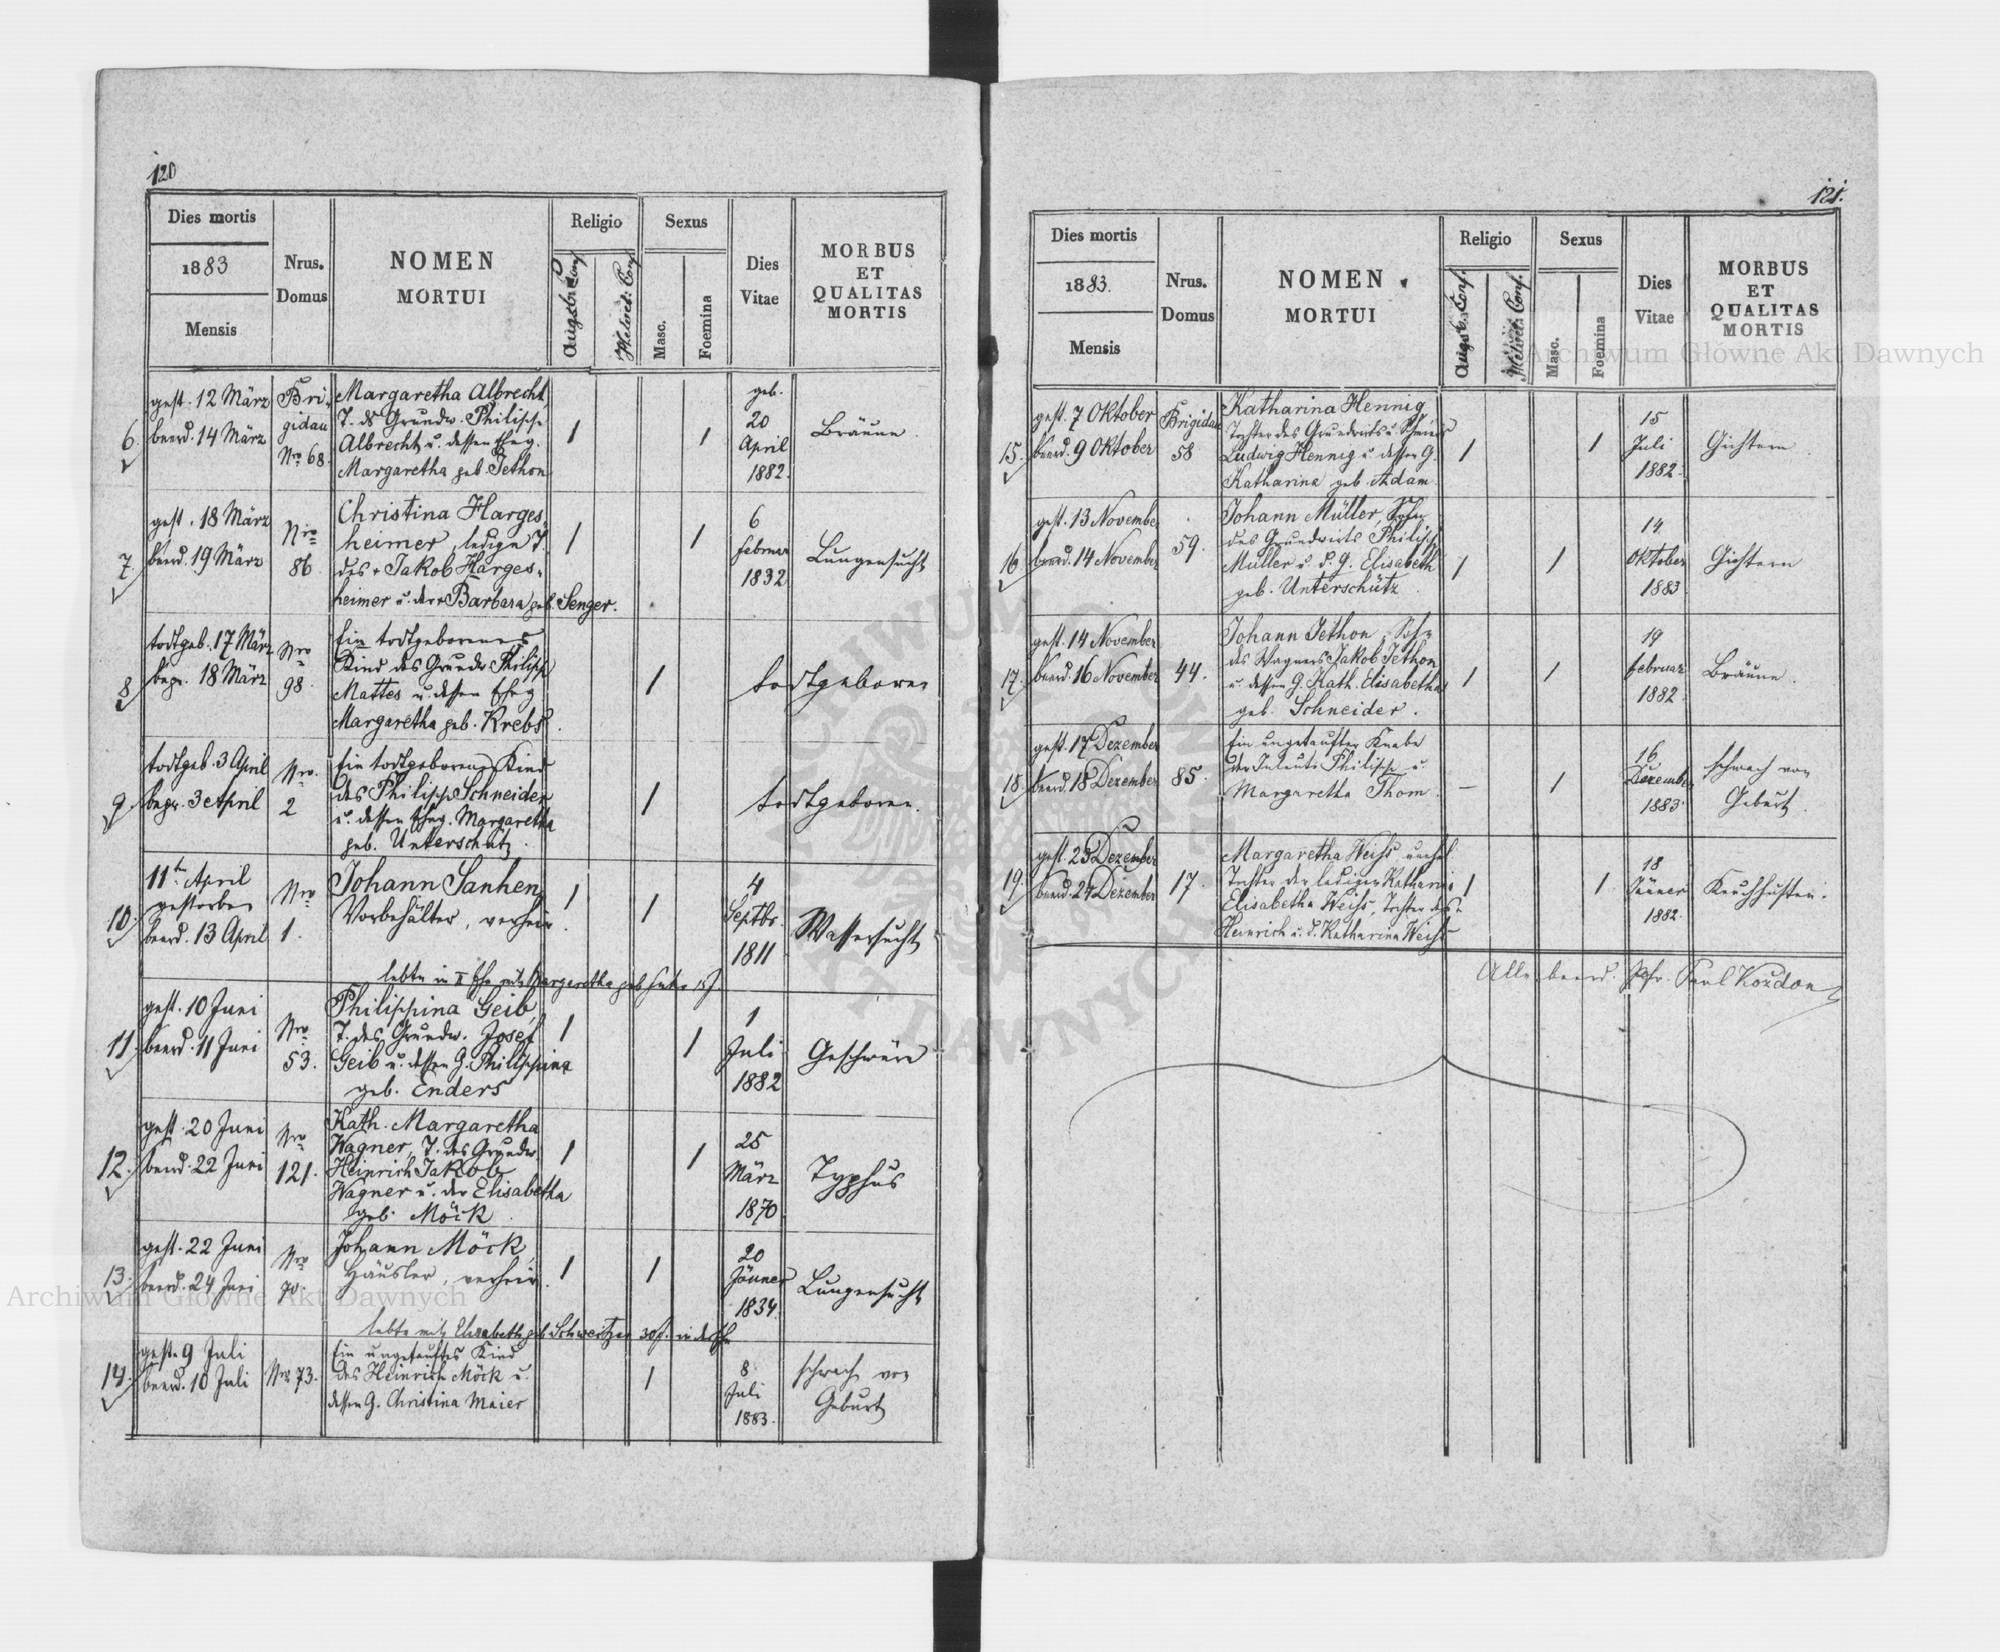 120
Dies mortis
1883
Mensis
Nrus.
Domus
NOMEN
MORTUI
Religio
Augsb. Conf.
Helvet. Conf.
Sexus
Masc.
Foemina
Dies
Vitae
MORBUS
ET
QUALITAS
MORTIS
6.
gest. 12 März
beerd. 14 März
Bri-
gidau
Nro 68.
Margaretha Albrecht,
T. ds Grundw. Philipp
Albrecht u. dessen Eheg.
Margaretha geb Jethon
1
1
geb.
20
April
1882.
Bräune.
7.
gest. 18 März
beerd. 19 März
Nro
86
Christina Harges-
heimer, ledige T.
des + Jakob Harges-
heimer u. der + Barbara geb. Senger.
1
1
6
Februar
1832
Lungensucht
8
todtgeb. 17 März
begr. 18 März
Nro
98.
Ein todtgeborenes
Kind des Grundw Philipp
Mattes u. dessen Eheg
Margaretha geb. Krebs.
1
todtgeboren
9.
todtgeb. 3 April
begr. 3 April
Nro.
2
Ein todtgeborenes Kind
des Philipp Schneider
u. dessen Eheg. Margaretha
geb. Unterschütz.
1
todtgeboren.
10.
11ten April
gestorben
beerd. 13 April
Nro
1.
Johann Sanhen,
Vorbehälter, verheir.
1
1
4
Septbr.
1811
Wassersucht
lebte in II Ehe mit Margaretha geb
11.
gest. 10 Juni
beerd. 11 Juni
Nro
53.
Philippina Geib,
T. des Grundw. Josef
Geib u. dessen G. Philippina
geb. Enders
1
1
1
Juli
1882
Geschwüre
12.
gest. 20 Juni
beerd. 22 Juni
Nro
121.
Kath. Margaretha
Wagner, T. des Grundw
Heinrich Jakob
Wagner u. der Elisabetha
geb. Möck.
1
1
25
März
1870.
Typhus
13.
gest. 22 Juni
beerd. 24 Juni
Nro
70.
Johann Möck,
Häusler, verheir.
1
1
20
Jänner
1834.
Lungensucht
lebte mit Elisabeth geb Schweitzer 30 J. in der Ehe
14.
gest. 9 Juli
beerd. 10 Juli
Nro 73.
Ein ungetauftes Kind
des Heinrich Möck u.
dessen G. Christina Maier
1
8
Juli
1883.
schwach von
Geburt
121.
Dies mortis
1883.
Mensis
Nrus.
Domus
NOMEN
MORTUI
Religio
Augsb. Conf.
Helvet. Conf.
Sexus
Masc.
Foemina
Dies
Vitae
MORBUS
ET
QUALITAS
MORTIS
15.
gest. 7 Oktober
beerd. 9 Oktober
Brigidau
58
Katharina Hennig
Tochter des Grundwirts u. Schmieds
Ludwig Hennig u dessen G.
Katharina geb. Adam
1
1
15
Juli
1882.
Gichtern.
16.
gest. 13 November
beerd. 14 November
59.
Johann Müller, Sohn
des Grundwirts Philipp
Müller u. d. G. Elisabeth
geb. Unterschütz.
1
1
14.
Oktober
1883
Gichtern
17.
gest. 14 November
beerd. 16 November
44.
Johann Jethon, Sohn
des Wagners Jakob Jethon
u. dessen G. Kath. Elisabetha
geb. Schneider.
1
1
19
Februar
1882.
Bräune.
18.
gest. 17 Dezember
beerd. 18 Dezember
85.
Ein ungetaufter Knabe
der Inleute Philipp u.
Margaretha Thom.
—
1
16
Dezember
1883.
schwach von
Geburt.
19.
gest. 23 Dezember
beerd. 24 Dezember
17.
Margaretha Weihs unehel.
Tochter der ledigen Katharina
Elisabetha Weihs, Tochter des +
Heinrich u. d. Katharina Weihs
1
1
18
Jänner
1882.
Keuchhusten.
Alle beerd. Pfr. Paul Kozdon
Archiwum Główne Akt Dawnych
Archiwum Główne Akt Dawnych
ARCHIWUM GŁÓWNE AKT DAWNYCH